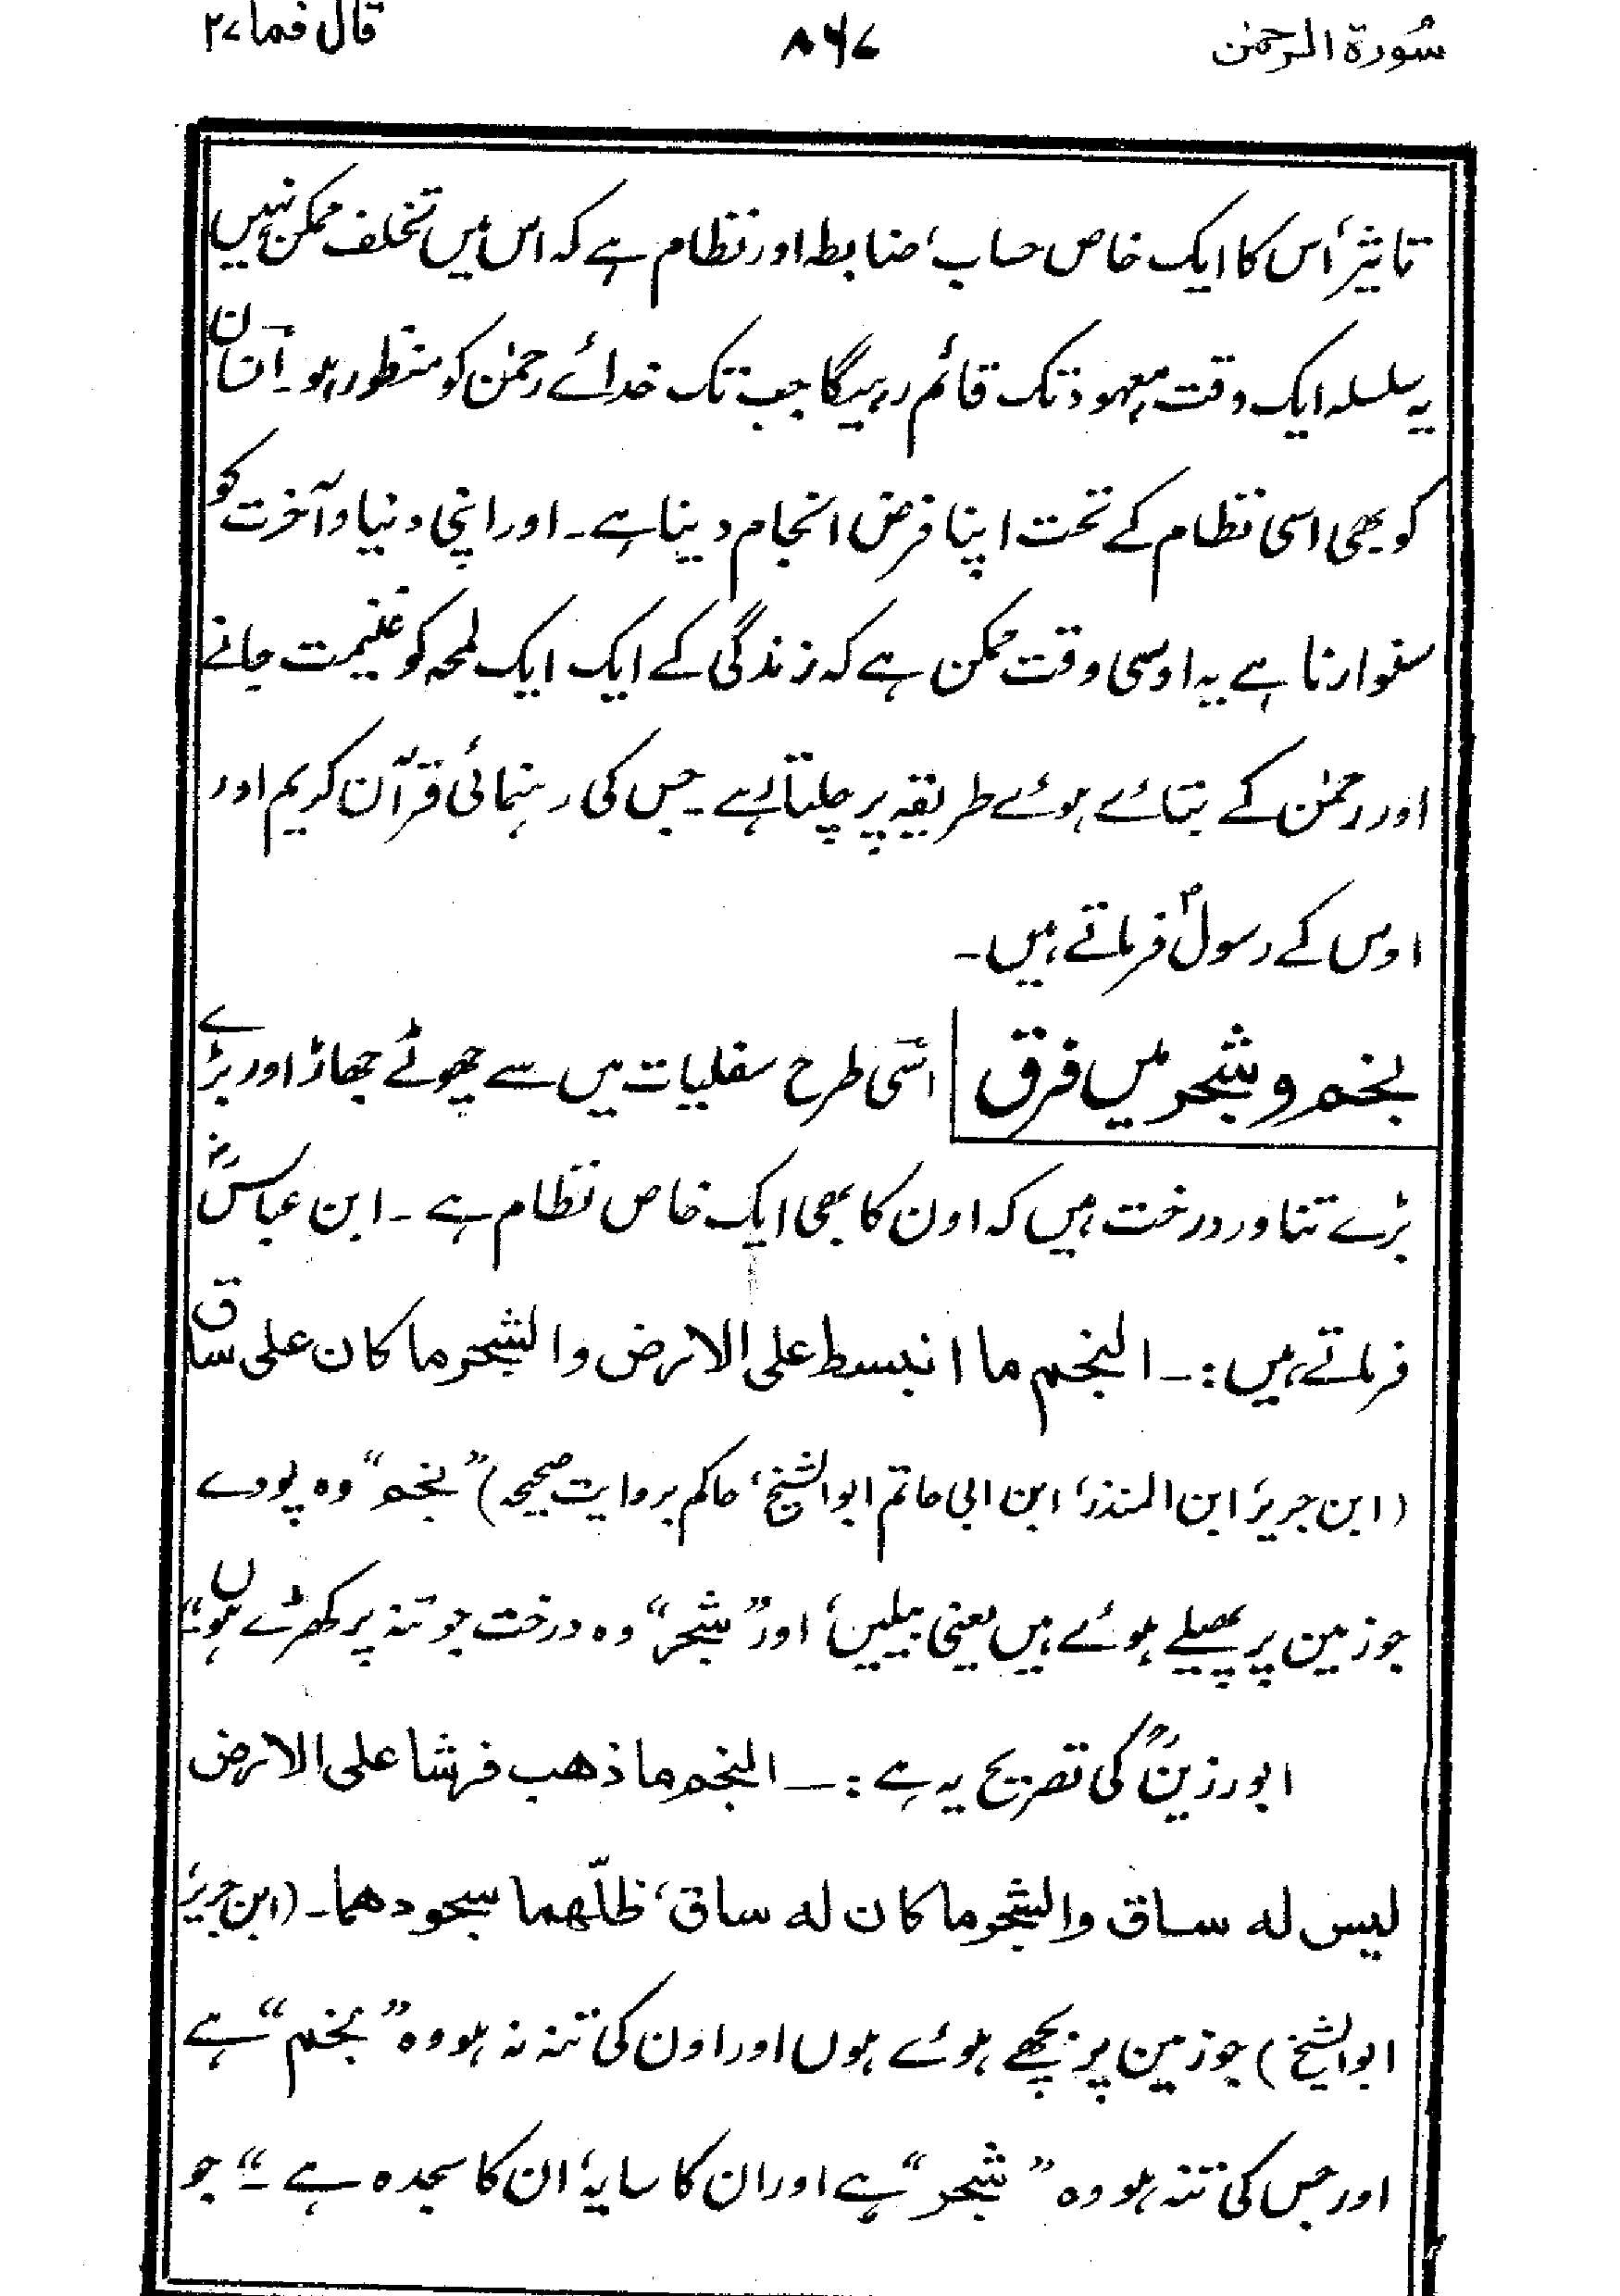 سُورة الرحمٰن ۸۶۷ قال فما ۲۷
تاثیر، اُس کا ایک خاص حساب، ضابطہ اور نظام ہے کہ اس میں تخلف ممکن نہیں
یہ سلسلہ ایک وقت معہود تک قائم رہیگا جب تک خدائے رحمٰن کو منظور ہو۔ انسان
کو بھی اسی نظام کے تحت اپنا فرض انجام دینا ہے۔ اور اپنی دنیا و آخرت کو
سنوارنا ہے یہ اوسی وقت ممکن ہے کہ زندگی کے ایک ایک لمحہ کو غنیمت جانے
اور رحمٰن کے بتائے ہوئے طریقہ پر چلتا ہے۔ جس کی رہنمائی قرآن کریم اور
اوس کے رسولؐ فرماتے ہیں۔
نجم و شجر میں فرق اسی طرح سفلیات میں سے چھوٹے جھاڑ اور بڑے
بڑے تناور درخت ہیں کہ اون کا بھی ایک خاص نظام ہے۔ ابن عباسؓ
فرماتے ہیں:۔ النجم ما انبسط علی الارض والشجر ما کان علی ساق
(ابن جریر، ابن المنذر، ابن ابی حاتم ابو الشیخ، حاکم بروایت صحیحہ) ”نجم“ وہ پودے
جو زمین پر پھیلے ہوئے ہیں یعنی بیلیں، اور ”شجر“ وہ درخت جو تنہ پر کھڑے ہوں۔“
ابو رزینؒ کی تصریح یہ ہے:۔ النجم ما ذھب فرشا علی الارض
لیس لہ ساق والشجر ما کان لہ ساق، ظلّھما سجودھما۔ (ابن جریر،
ابو الشیخ) جو زمین پر بچھے ہوئے ہوں اور اون کی تنہ نہ ہو وہ ”نجم“ ہے
اور جس کی تنہ ہو وہ ”شجر“ ہے اور ان کا سایہ، ان کا سجدہ ہے۔“ جو